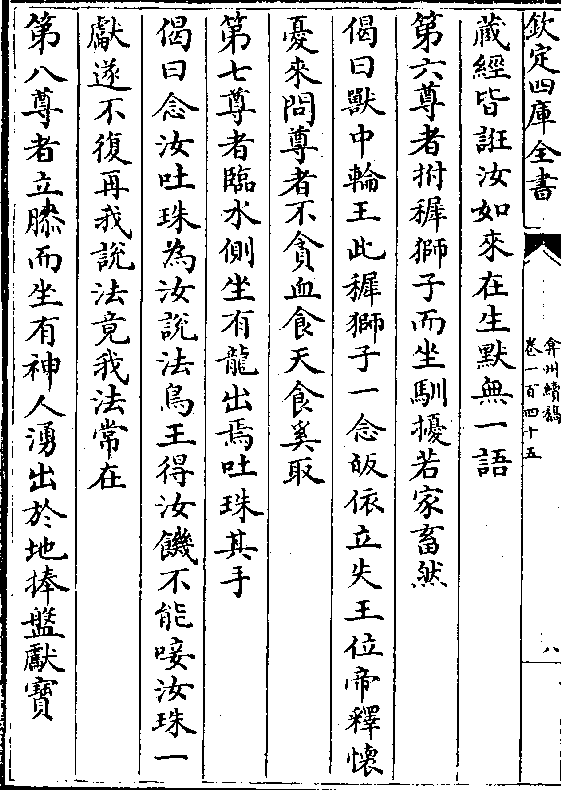 欽定四庫全書
弇州續稿
卷一百四十五
八
藏經皆誑汝如來在生默無一語
第六尊者拊穉獅子而坐馴擾若家畜然
偈曰獸中輪王此穉獅子一念皈依立失王位帝釋懷
憂來問尊者不貪血食天食奚取
第七尊者臨水側坐有龍出焉吐珠其手
偈曰念汝吐珠為汝說法鳥王得汝饑不能唼汝珠一
獻遂不復再我說法竟我法常在
第八尊者立膝而坐有神人湧出於地捧盤獻寶